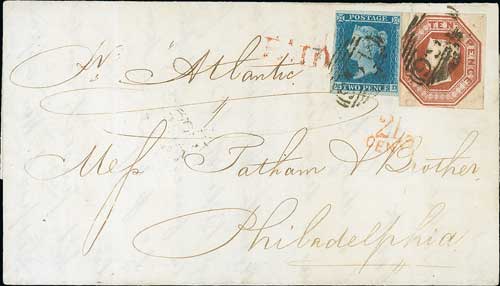 POSTAGE
TWO PENCE
TEN PENCE
Pr. Atlantic
21
CENTS
Messrs Tatham & Brother
Philadelphia